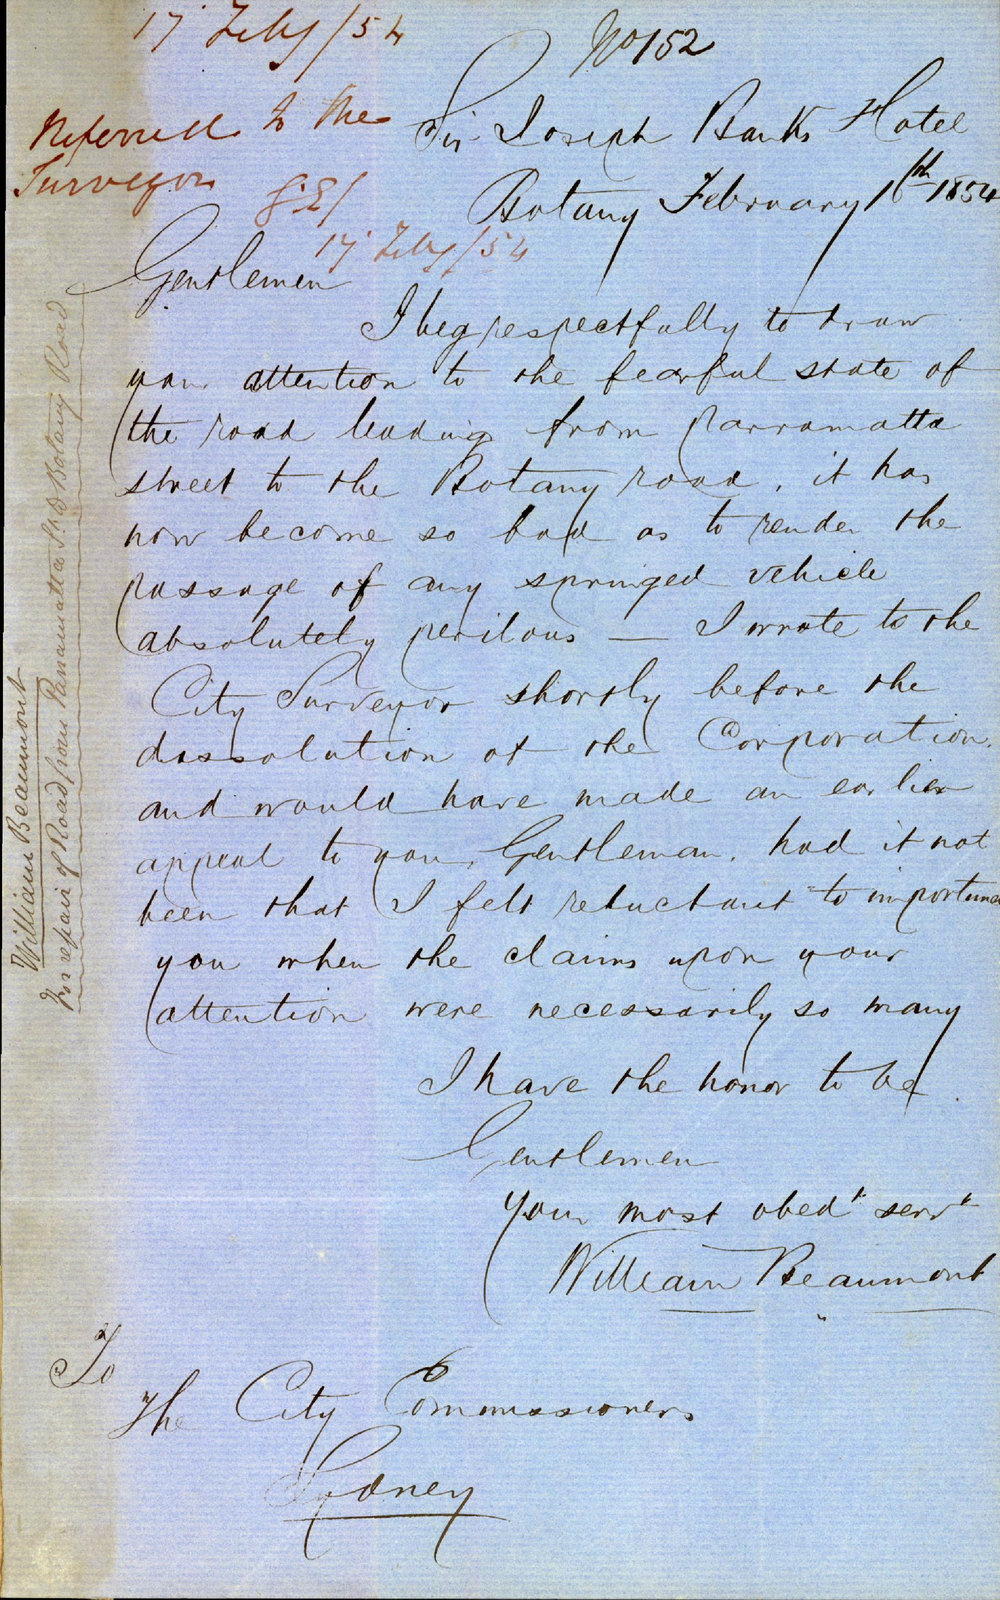 17 Feby/54
No 152
Referred to the
Surveyor
17 Feby/54
Sir Joseph Banks Hotel
Botany February 16th 1854
Gentlemen
I beg respectfully to draw
your attention to the fearful state of
the road leading from Parramatta
street to the Botany road, it has
now become so bad as to render the
passage of any springed vehicle
absolutely perilous — I wrote to the
City Surveyor shortly before the
dissolution of the Corporation,
and would have made an earlier
appeal to you, Gentleman, had it not
been that I felt reluctant to importune
you when the claims upon your
attention were necessarily so many
I have the honor to be
Gentlemen
Your most obedt servt
William Beaumont
To
The City Commissioners
Sydney
William Beaumont
For repair of Road from Parramatta St to Botany Road